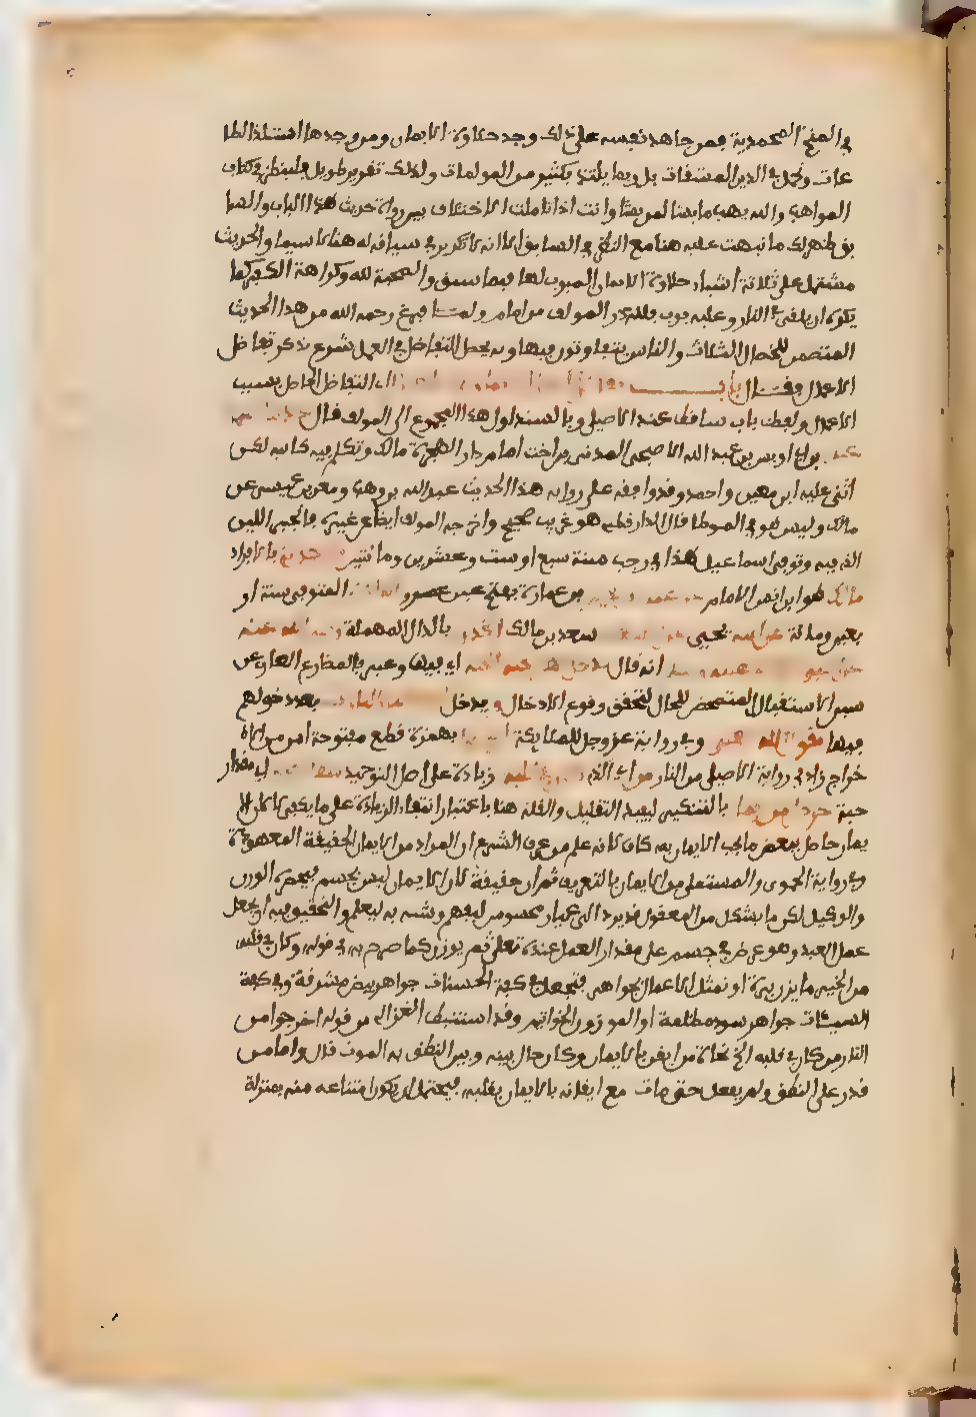 في المنح المحمدية فمن جاهد نفسه على ذلك وجد حلاوة الايمان ومن وجدها استلذ الطا
عات وتحمل في الدين المشقات بل ربما يلتذ بكثير من المولمات ولذلك تقرير طويل فلينظر في كتاب
المواهب والله يهب ما يشا لمن يشا وانت اذا تاملت الاختلاف بين رواة حديث هذا الباب والسا
بق ظهر لك ما نبهت عليه هنا مع التاخر في السابق الا انه لا تكرير في سياقه له هنا لا سيما والحديث
مشتمل على ثلاثة اشياء حلاوة الايمان المبوب لها فيما سبق والمحبة لله وكراهة الكفر كما
يكره ان يلقى في النار وعليه بوب فلله در المولف من امام ولما فرغ رحمه الله من هذا الحديث
المتضمن للخصال الثلاث والناس يتفاوتون فيها وبه يحصل التفاضل في العمل شرع يذكر تفاضل
الاعمال فقال باب التفاضل الحاصل بسبب
الاعمال ولفظ باب ساقط عند الاصيلي وبالسند اول هذا المجموع الى المولف قال
بن ابي اويس بن عبد الله الاصبحي المدني ابن اخت امام دار الهجرة مالك وتكلم فيه كابيه لكن
اثنى عليه ابن معين واحمد وقد وافقه على رواية هذا الحديث عبد الله بن وهب ومعن بن عيسى عن
مالك وليس هو في الموطا قال الدارقطني هو غريب صحيح واخرجه المولف ايضا عن غيره فانجبر اللين
الذي فيه وتوفي اسماعيل هذا في رجب سنة سبع او ست وعشرين ومائتين بالافراد
مالك هو ابن انس الامام بن عمارة بفتح عين عمرو المتوفى سنة ار
بعين ومائة عن ابيه يحيى سعد بن مالك الخدري بالدال المهملة رضي الله عنه
انه قال يدخل اي فيها وعبر بالمضارع العاري عن
سين الاستقبال المتمحض للحال لتحقق وقوع الادخال ويدخل بعد دخولهم
فيها وفي رواية عز وجل للملائكة بهمزة قطع مفتوحة امر من الا
خراج زاد في رواية الاصيلي من النار من اي الذي زيادة على اصل التوحيد اي مقدار
حبة بالتنكير ليفيد التقليل والقلة هنا باعتبار انتفاء الزيادة على ما يكفي لا لان الا
يمان حاصل ببعض ما يجب الايمان به كاف لانه علم من عرف الشرع ان المراد من الايمان الحقيقة المعهودة
وفي رواية الحموي والمستملي من الايمان بالتعريف ثم ان حقيقة لان الايمان ليس بجسم فيحصره الوزن
والوكيل لكن ما يشكل من المعقول قد يرد الى عيار محسوس ليفهم وشبه به ليعلم والتحقيق فيه ان يجعل
عمل العبد وهو عرض في جسم على مقدار العمل عنده تعلى ثم يوزن كما صرح به في قوله وكان في قلبه
من الخير ما يزن برة او تمثل الاعمال بجواهر فتجعل في كفة الحسنات جواهر بيض مشرقة وفي كفة
السيئات جواهر سود مظلمة او الموزون الخواتم وقد استنبط الغزالي من قوله اخرجوا من
النار من كان في قلبه الخ نجاة من ايقن بالايمان وكان حال بينه وبين النطق به الموت قال واما من
قدر على النطق ولم يفعل حتى مات مع ايقانه بالايمان بقلبه فيحتمل ان يكون امتناعه منه بمنزلة